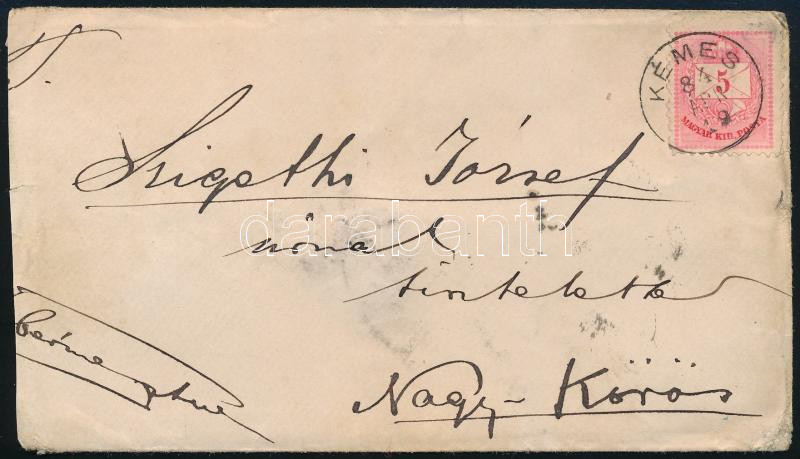 KÉMES
5
MAGYAR KIR. POSTA
Szigethi József
úrnak
tisztelettel
Nagy-Körös
darabanth